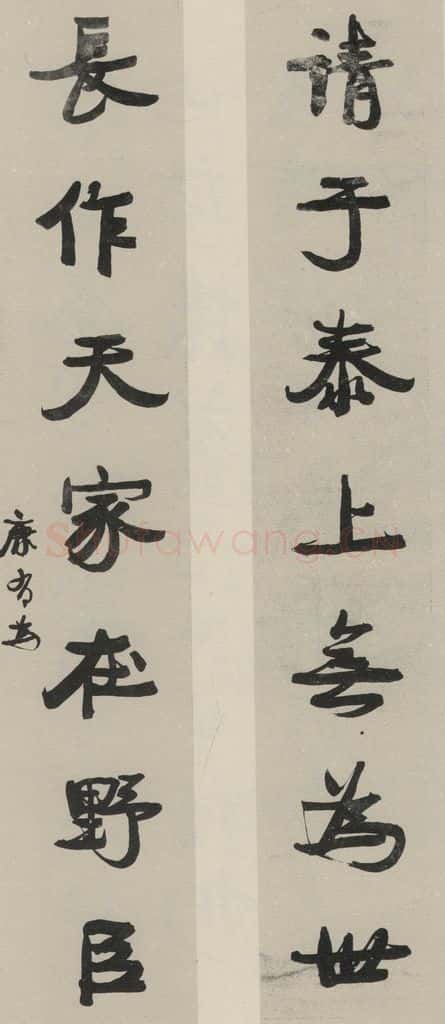 請于泰上無為世
長作天家在野臣
康有為
Shufawang.CN